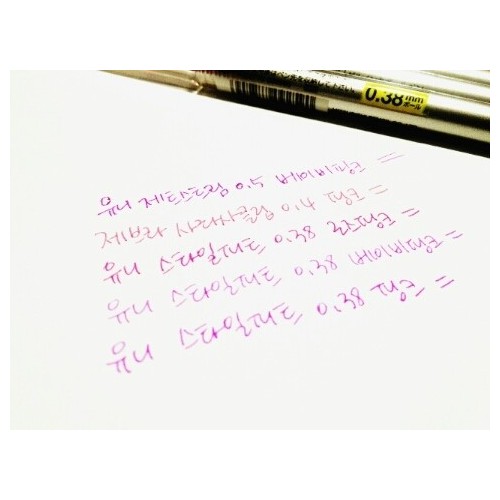 0.38mm
ボール
유니 제트스트림 0.5 베이비핑크 =
제브라 사라사클립 0.4 핑크 =
유니 스타일피트 0.38 로즈핑크 =
유니 스타일피트 0.38 베이비핑크 =
유니 스타일피트 0.38 핑크 =